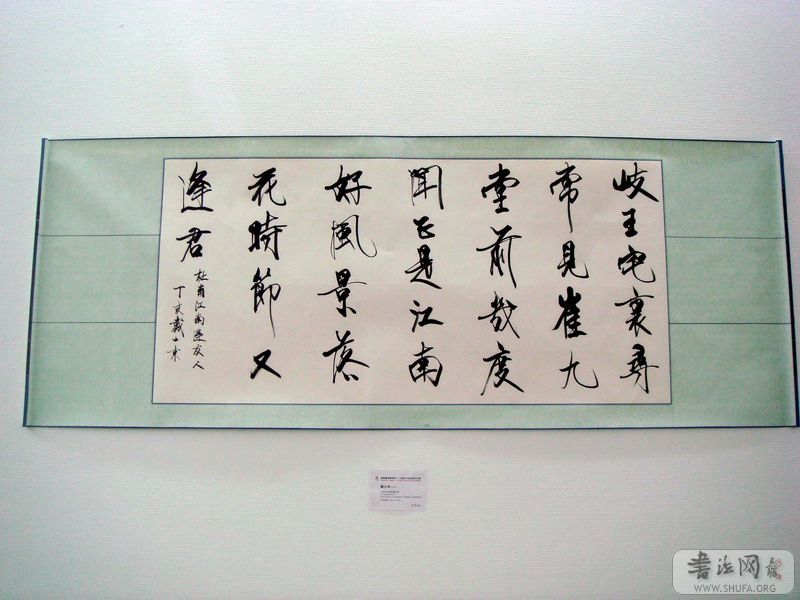 岐王宅裏尋
常見崔九
堂前幾度
聞正是江南
好風景落
花時節又
逢君
杜甫江南逢友人
丁亥戴小京
書法网
WWW.SHUFA.ORG